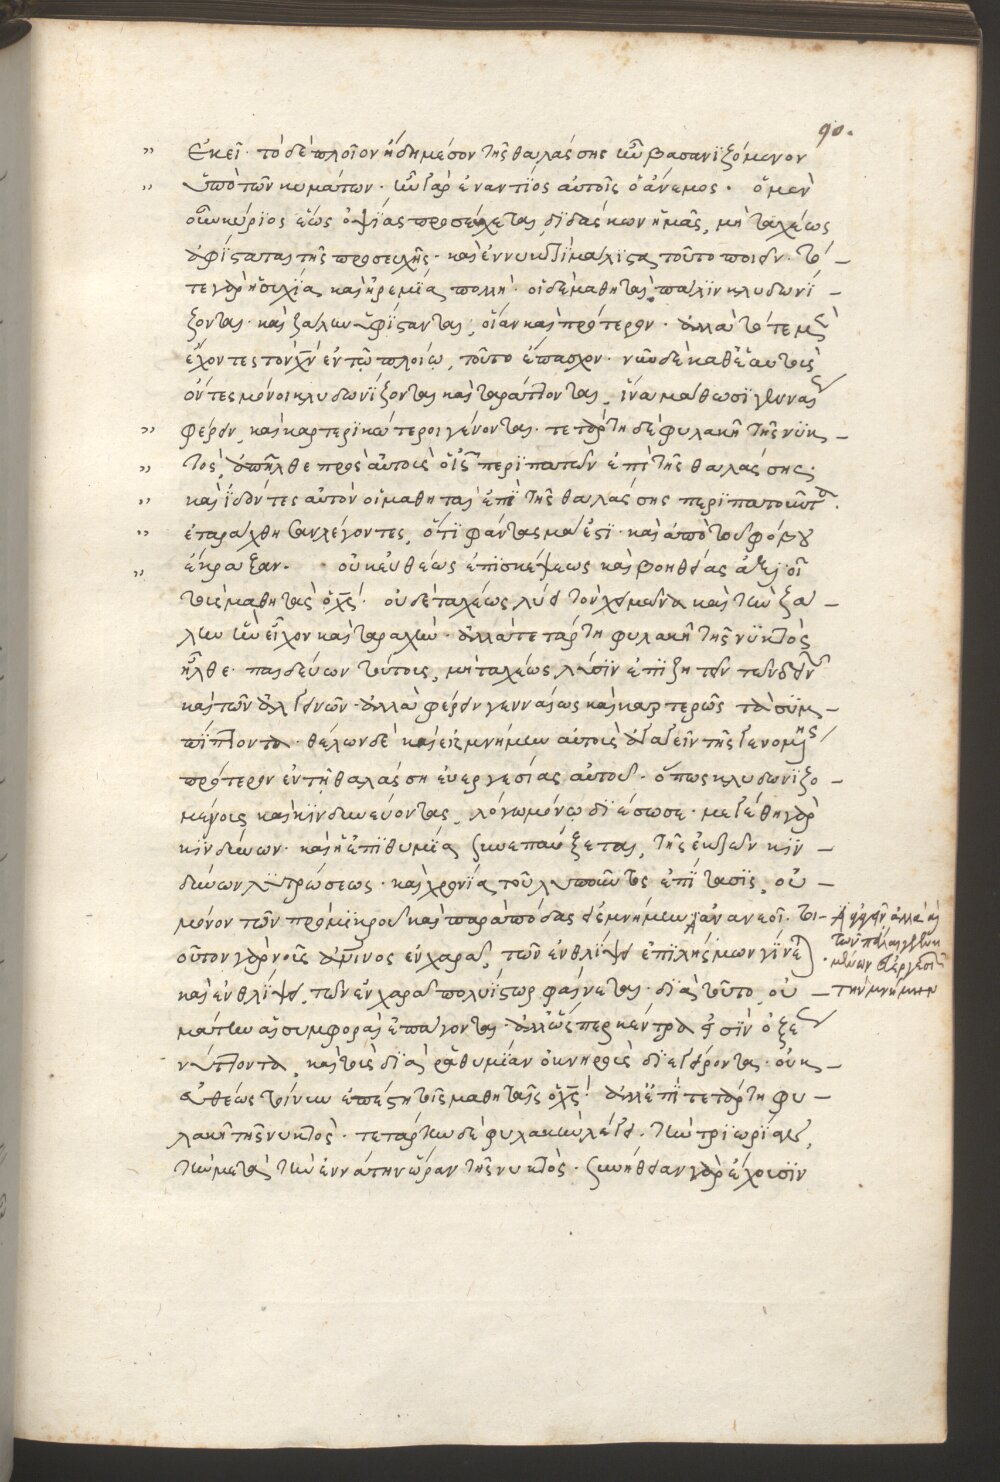 90.
" Ἐκεῖ· τὸ δὲ πλοῖον ἤδη μέσον τῆς θαλάσσης ἦν βασανιζόμενον
" ὑπὸ τῶν κυμάτων· ἦν γὰρ ἐναντίος αὐτοῖς ὁ ἄνεμος· ὁ μὲν
οὖν κύριος ἕως ὀψίας προσεύχεται, διδάσκων ἡμᾶς, μὴ ταχέως
ἀφίστασθαι τῆς προσευχῆς· καὶ ἐν νυκτὶ μάλιστα τοῦτο ποιεῖν· τό –
τε γὰρ ἡσυχία καὶ ἠρεμία πολλή· οἱ δὲ μαθηταὶ πάλιν κλυδωνί –
ζονται· καὶ ζάλην ὑφίστανται, οἵαν καὶ πρότερον· ἀλλὰ τότε μὲν
ἔχοντες τὸν χν ἐν τῷ πλοίῳ, τοῦτο ἔπασχον· νῦν δὲ καθ' ἑαυτοὺς
ὄντες μόνοι κλυδωνίζονται καὶ ταράττονται, ἵνα μάθωσι γενναίως
" φέρειν, καὶ καρτερικώτεροι γένωνται· τετάρτη δὲ φυλακῇ τῆς νυκ –
" τὸς, ἀπῆλθε πρὸς αὐτοὺς ὁ ις περιπατῶν ἐπὶ τῆς θαλάσσης·
" καὶ ἰδόντες αὐτὸν οἱ μαθηταὶ ἐπὶ τῆς θαλάσσης περιπατοῦντα·
" ἐταράχθησαν λέγοντες, ὅτι φάντασμά ἐστι· καὶ ἀπὸ τοῦ φόβου
" ἔκραξαν. · οὐκ εὐθέως ἐπισκέψεως καὶ βοηθείας ἀξιοῖ
τοὺς μαθητὰς ὁ χς· οὐδὲ ταχέως λύει τὸν χειμῶνα καὶ τὴν ζά –
λην ἣν εἶχον καὶ ταραχήν· ἀλλὰ τετάρτη φυλακῇ τῆς νυκτὸς
ἦλθε· παιδεύων τούτοις, μὴ ταχέως λύσιν ἐπιζητεῖν τῶν δεινῶν
καὶ τῶν ἀλγεινῶν· ἀλλὰ φέρειν γενναίως καὶ καρτερῶς τὰ συμ –
πίπτοντα· θέλων δὲ καὶ εἰς μνήμην αὐτοὺς ἀγαγεῖν τῆς γενομένης
πρότερον ἐν τῇ θαλάσσῃ εὐεργεσίας αὐτοῦ· ὅπως κλυδωνιζο –
μένοις καὶ κινδυνεύοντας, λόγῳ μόνῳ διέσωσε· μεγέθη γὰρ
κινδύνων· καὶ ἡ ἐπιθυμία συνεπαύξεται, τῆς ἐκ τῶν κιν –
δύνων λυτρώσεως· καὶ χρονία τοῦ λυποῦντος ἐπίτασις, οὐ –
μόνον τῶν πρὸ μικροῦ καὶ παρὰ πόδας εἰς μνήμην ἀνανεοῖ· τοι –
οῦτον γὰρ νοῦς ἀνθρώπινος ἐν χαρᾷ, τῶν ἐν θλίψει ἐπιλήσμων γίνεται
καὶ ἐν θλίψει, τῶν ἐν χαρᾷ πολυίστωρ φαίνεται· διὰ τοῦτο, οὐ –
μάτην αἱ συμφοραὶ ἐπάγονται· ἀλλ' ὥσπερ κέντρα εἰσὶν ὀξέως
νύττοντα, καὶ τοὺς διὰ ῥᾳθυμίαν ὀκνηροὺς διεγείροντας· οὐκ –
εὐθέως τοίνυν ἐπέστη τοῖς μαθηταῖς ὁ χς· ἀλλ' ἐπὶ τετάρτη φυ –
λακῇ τῆς νυκτὸς· τετάρτην δὲ φυλακὴν λέγει· τὴν τριωρίαν,
τὴν μετὰ τὴν ἐννάτην ὥραν τῆς νυκτὸς· συνήθειαν γὰρ ἔχουσιν
ἀλλὰ καὶ
τῶν πάλαι
εὐεργεσιῶν
τὴν μνήμην